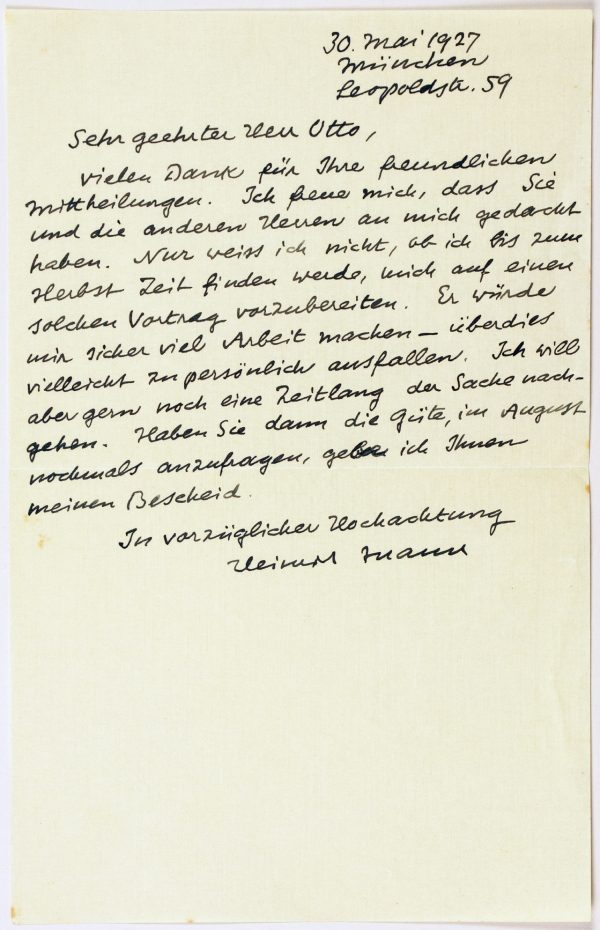 30. Mai 1927
München
Leopoldstr. 59
Sehr geehrter Herr Otto,
vielen Dank für Ihre freundlichen
Mittheilungen. Ich freue mich, dass Sie
und die anderen Herren an mich gedacht
haben. Nur weiss ich nicht, ob ich bis zum
Herbst Zeit finden werde, mich auf einen
solchen Vortrag vorzubereiten. Er würde
mir sicher viel Arbeit machen – überdies
vielleicht zu persönlich ausfallen. Ich will
aber gern noch eine Zeitlang der Sache nach-
gehen. Haben Sie dann die Güte, im August
nochmals anzufragen, gebe ich Ihnen
meinen Bescheid.
In vorzüglicher Hochachtung
Heinrich Mann